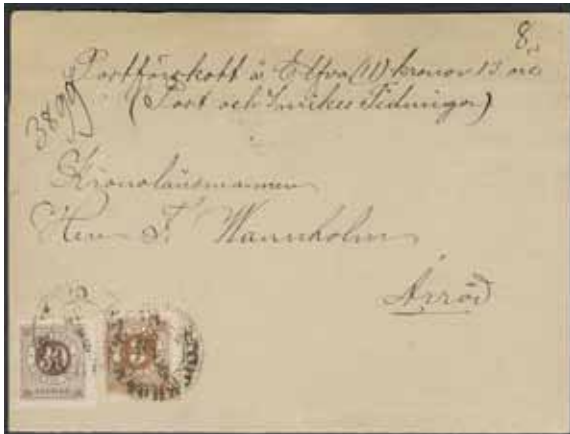 8
Postförskott à Elfva (11) kronor 13 öre
(Post och Inrikes Tidningar)
3899
Kronolänsmannen
Herr F. Wannholm
Arröd
30